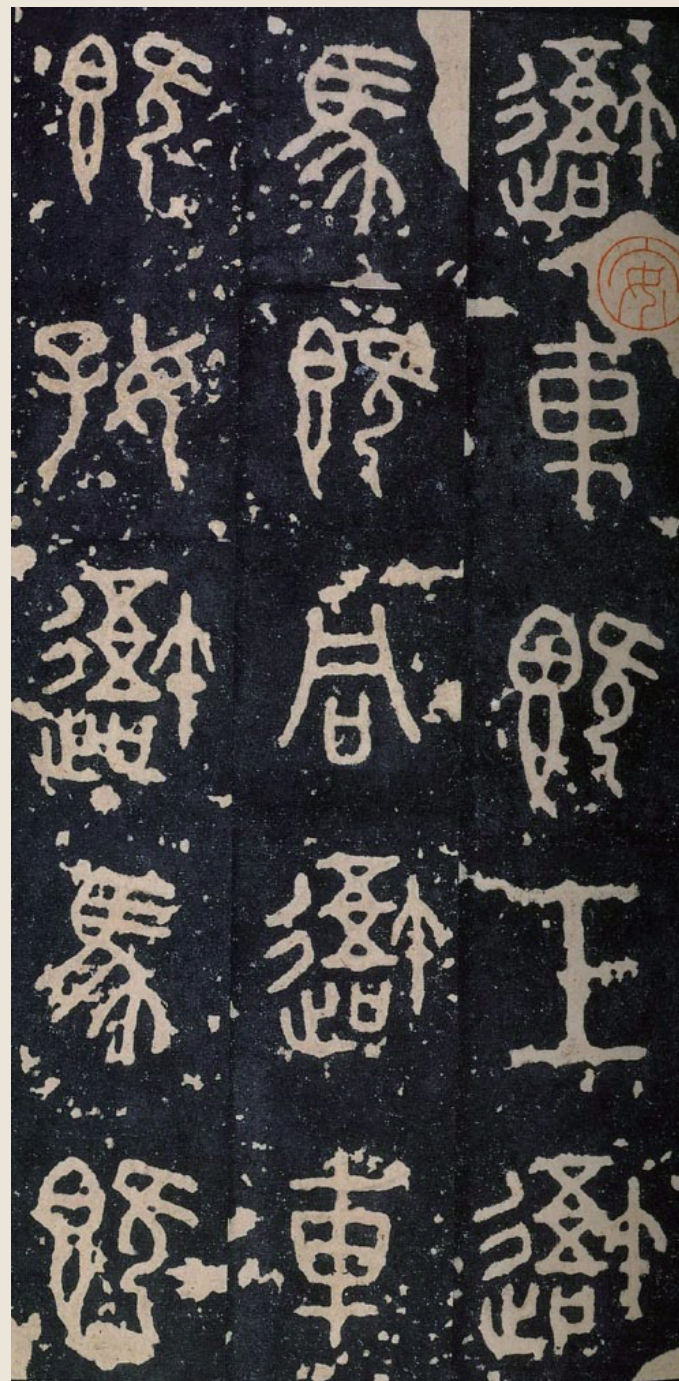 吾車既工吾
馬既同吾車
既好吾馬既